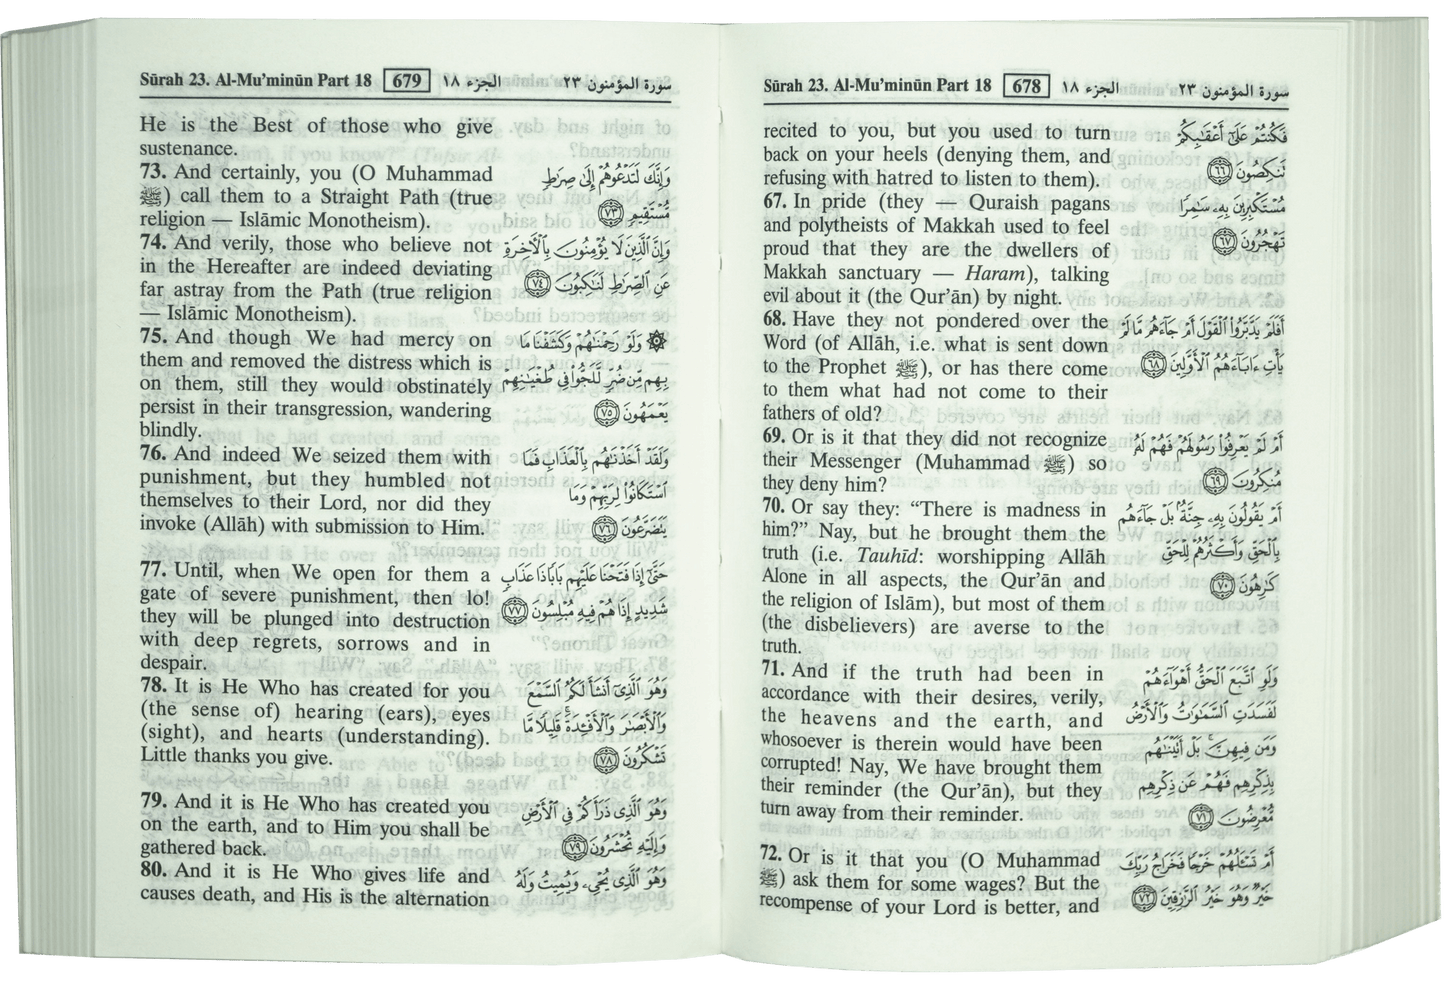 Sūrah 23. Al-Mu’minūn Part 18 678 الجزء ١٨ سورة المؤمنون ٢٣
recited to you, but you used to turn
back on your heels (denying them, and
refusing with hatred to listen to them).
67. In pride (they — Quraish pagans
and polytheists of Makkah used to feel
proud that they are the dwellers of
Makkah sanctuary — Haram), talking
evil about it (the Qur’ān) by night.
68. Have they not pondered over the
Word (of Allāh, i.e. what is sent down
to the Prophet ﷺ), or has there come
to them what had not come to their
fathers of old?
69. Or is it that they did not recognize
their Messenger (Muhammad ﷺ) so
they deny him?
70. Or say they: “There is madness in
him?” Nay, but he brought them the
truth (i.e. Tauhīd: worshipping Allāh
Alone in all aspects, the Qur’ān and
the religion of Islām), but most of them
(the disbelievers) are averse to the
truth.
71. And if the truth had been in
accordance with their desires, verily,
the heavens and the earth, and
whosoever is therein would have been
corrupted! Nay, We have brought them
their reminder (the Qur’ān), but they
turn away from their reminder.
72. Or is it that you (O Muhammad
ﷺ) ask them for some wages? But the
recompense of your Lord is better, and
فَكُنتُمْ عَلَىٰٓ أَعْقَٰبِكُمْ
تَنكِصُونَ ٦٦
مُسْتَكْبِرِينَ بِهِۦ سَٰمِرًا
تَهْجُرُونَ ٦٧
أَفَلَمْ يَدَّبَّرُوا۟ ٱلْقَوْلَ أَمْ جَآءَهُم مَّا لَمْ
يَأْتِ ءَابَآءَهُمُ ٱلْأَوَّلِينَ ٦٨
أَمْ لَمْ يَعْرِفُوا۟ رَسُولَهُمْ فَهُمْ لَهُۥ
مُنكِرُونَ ٦٩
أَمْ يَقُولُونَ بِهِۦ جِنَّةٌۢ بَلْ جَآءَهُم
بِٱلْحَقِّ وَأَكْثَرُهُمْ لِلْحَقِّ
كَٰرِهُونَ ٧٠
وَلَوِ ٱتَّبَعَ ٱلْحَقُّ أَهْوَآءَهُمْ
لَفَسَدَتِ ٱلسَّمَٰوَٰتُ وَٱلْأَرْضُ
وَمَن فِيهِنَّ ۚ بَلْ أَتَيْنَٰهُم
بِذِكْرِهِمْ فَهُمْ عَن ذِكْرِهِم
مُّعْرِضُونَ ٧١
أَمْ تَسْـَٔلُهُمْ خَرْجًا فَخَرَاجُ رَبِّكَ
خَيْرٌ ۖ وَهُوَ خَيْرُ ٱلرَّٰزِقِينَ ٧٢
Sūrah 23. Al-Mu’minūn Part 18 679 الجزء ١٨ سورة المؤمنون ٢٣
He is the Best of those who give
sustenance.
73. And certainly, you (O Muhammad
ﷺ) call them to a Straight Path (true
religion — Islāmic Monotheism).
74. And verily, those who believe not
in the Hereafter are indeed deviating
far astray from the Path (true religion
— Islāmic Monotheism).
75. And though We had mercy on
them and removed the distress which is
on them, still they would obstinately
persist in their transgression, wandering
blindly.
76. And indeed We seized them with
punishment, but they humbled not
themselves to their Lord, nor did they
invoke (Allāh) with submission to Him.
77. Until, when We open for them a
gate of severe punishment, then lo!
they will be plunged into destruction
with deep regrets, sorrows and in
despair.
78. It is He Who has created for you
(the sense of) hearing (ears), eyes
(sight), and hearts (understanding).
Little thanks you give.
79. And it is He Who has created you
on the earth, and to Him you shall be
gathered back.
80. And it is He Who gives life and
causes death, and His is the alternation
وَإِنَّكَ لَتَدْعُوهُمْ إِلَىٰ صِرَٰطٍ
مُّسْتَقِيمٍ ٧٣
وَإِنَّ ٱلَّذِينَ لَا يُؤْمِنُونَ بِٱلْـَٔاخِرَةِ
عَنِ ٱلصِّرَٰطِ لَنَٰكِبُونَ ٧٤
۞ وَلَوْ رَحِمْنَٰهُمْ وَكَشَفْنَا مَا
بِهِم مِّن ضُرٍّ لَّلَجُّوا۟ فِى طُغْيَٰنِهِمْ
يَعْمَهُونَ ٧٥
وَلَقَدْ أَخَذْنَٰهُم بِٱلْعَذَابِ فَمَا
ٱسْتَكَانُوا۟ لِرَبِّهِمْ وَمَا
يَتَضَرَّعُونَ ٧٦
حَتَّىٰٓ إِذَا فَتَحْنَا عَلَيْهِم بَابًا ذَا عَذَابٍ
شَدِيدٍ إِذَا هُمْ فِيهِ مُبْلِسُونَ ٧٧
وَهُوَ ٱلَّذِىٓ أَنشَأَ لَكُمُ ٱلسَّمْعَ
وَٱلْأَبْصَٰرَ وَٱلْأَفْـِٔدَةَ ۚ قَلِيلًا مَّا
تَشْكُرُونَ ٧٨
وَهُوَ ٱلَّذِى ذَرَأَكُمْ فِى ٱلْأَرْضِ
وَإِلَيْهِ تُحْشَرُونَ ٧٩
وَهُوَ ٱلَّذِى يُحْىِۦ وَيُمِيتُ وَلَهُ